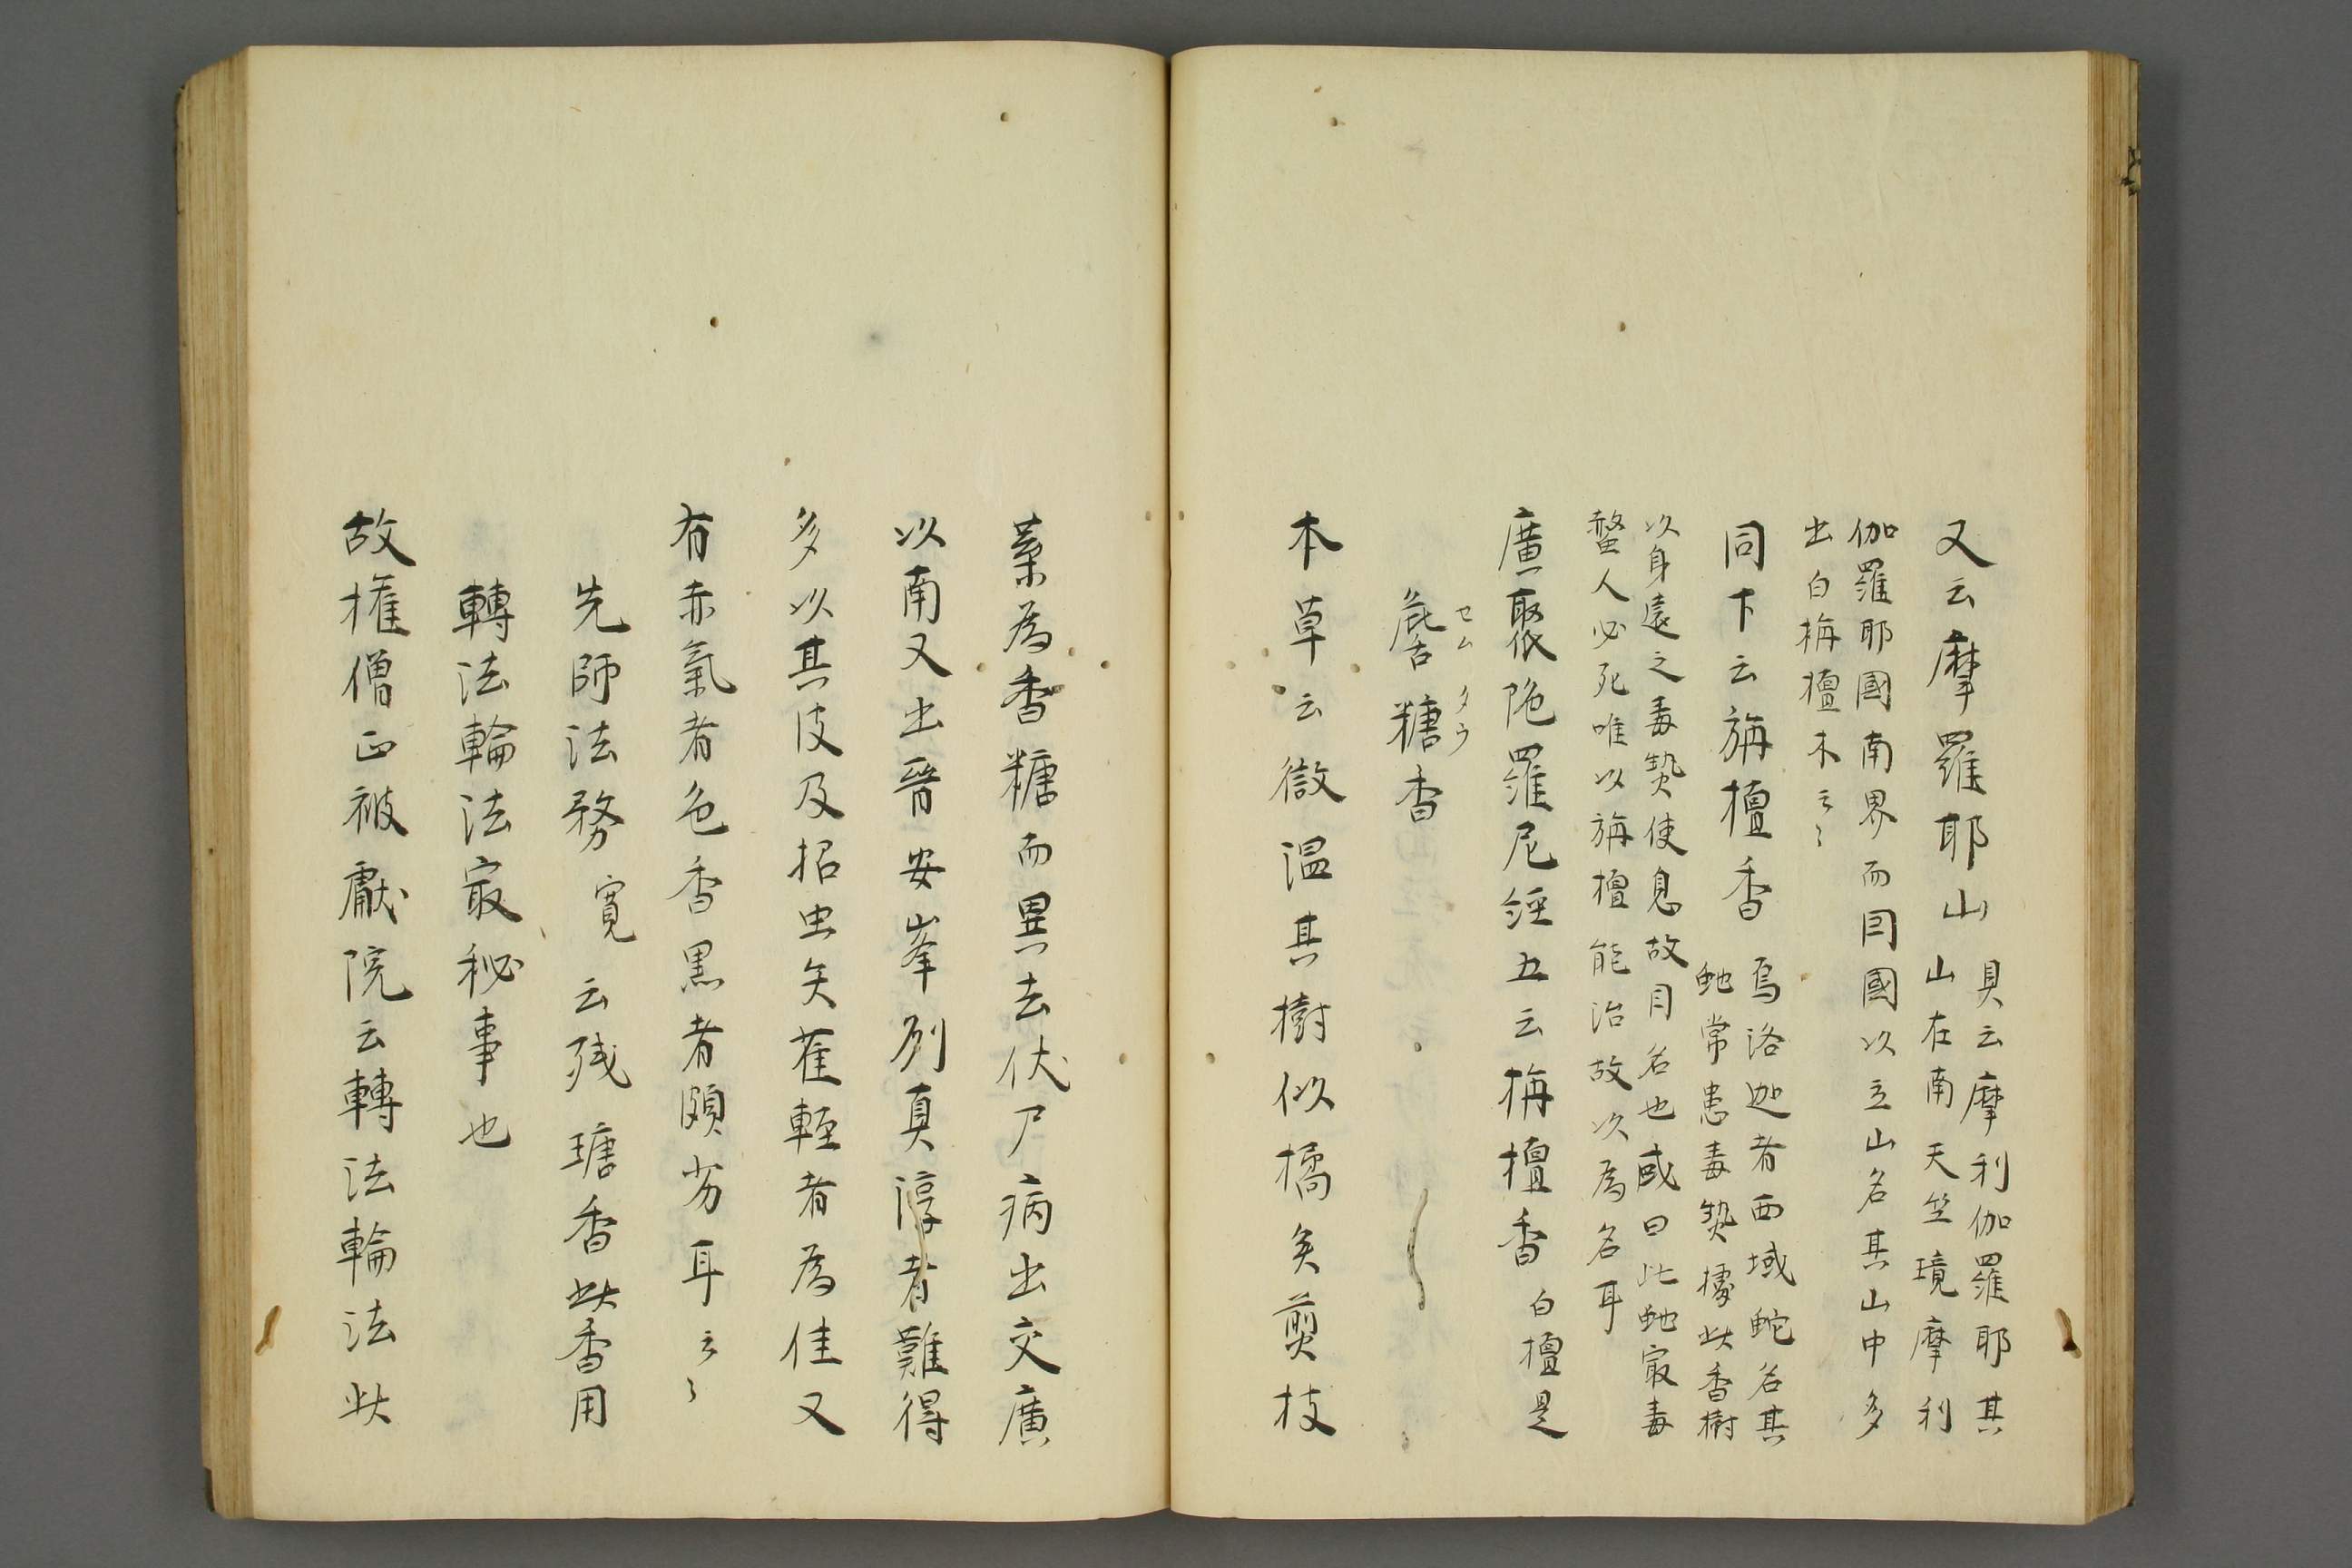 又云摩羅耶山具云摩利伽羅耶其
山在南天竺境摩利
伽羅耶國南界而因國以立山名其山中多
出白栴檀木云〻
同下云旃檀香烏洛迦者西域蛇名其
虵常患毒𤍠據此香樹
以身遶之毒𤍠使息故因名也或曰此虵最毒
螫人必死唯以旃檀能治故以為名耳
廣聚陀羅尼經五云栴檀香白檀是
糖香
セム タウ
本草云微温其樹似橘矣煎枝
葉為香糖而異去伏尸病出交廣
以南又出晉安岑州真淳者難得
多以其皮及柘虫矢雜輕者為佳又
有赤氣者色香黒者頗劣耳云〻
先師法務寛云残瑭香此香用
轉法輪法最秘事也
故権僧正被獻院云轉法輪法此